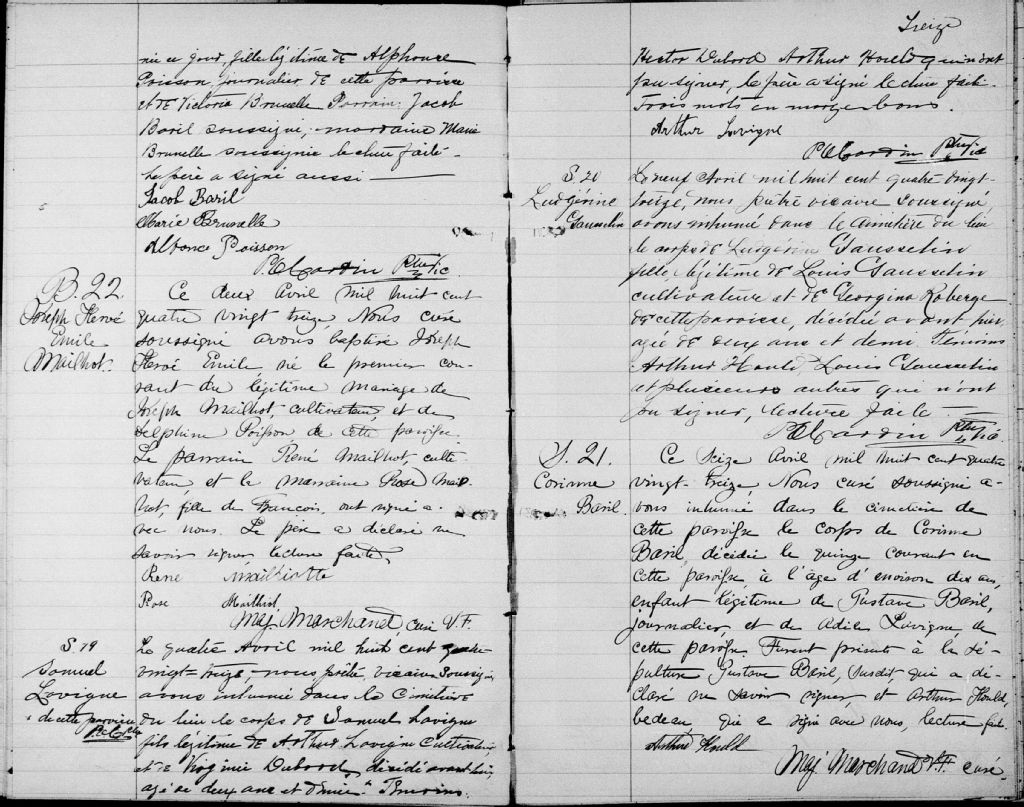 née ce jour, fille légitime de Alphonse
Poisson journalier de cette paroisse
et de Victoria Brunelle Parrain: Jacob
Baril soussigné, marraine Marie
Brunelle soussignée lecture faite.
Le père a signé aussi
Jacob Baril
Marie Brunelle
Alfonce Poisson
Ptre Vic
B. 22
Joseph Hervé
Emile
Mailhot.
Ce deux Avril mil huit cent
quatre vingt treize, Nous curé
soussigné avons baptisé Joseph
Hervé Emile, né le premier cou-
rant du légitime mariage de
Joseph Mailhot, cultivateur, et de
Delphine Poisson de cette paroisse.
Le parrain René Mailhot, culti-
vateur, et la marraine Rose Mail-
hot, fille de François, ont signé a-
vec nous. Le père a déclaré ne
savoir signer lecture faite.
René Mailhotte
Rose Mailhot,
Maj. Marchand, curé V.F.
S. 19
Samuel
Lavigne
de cette paroisse
Le quatre Avril mil huit cent quatre
vingt-treize, nous prêtre, vicaire soussigné,
avons inhumé dans le Cimetière
du lieu le corps de Samuel Lavigne
fils légitime de Arthur Lavigne Cultivateur
et de Virginie Dubord, décédé avant hier,
agé de deux ans et demi. Témoins
Treize
Hector Dubord Arthur Hould qui n'ont
pu signer, le père a signé lecture faite.
Trois mots en marge bons.
Arthur Lavigne
Ptre Vic
S. 20
Ludgérine
Gausselin
Le neuf Avril mil huit cent quatre vingt-
treize, nous prêtre vicaire soussigné,
avons inhumé dans le cimetière du lieu
le corps de Ludgérine Gausselin
fille légitime de Louis Gausselin
cultivateur et de Georgina Roberge
de cette paroisse, décédée avant hier
agée de deux ans et demi. Témoins
Arthur Hould, Louis Gausselin
et plusieurs autres qui n'ont
pu signer, lecture faite
Ptre Vic
S. 21.
Corinne
Baril.
Ce seize Avril mil huit cent quatre
vingt-treize, Nous curé soussigné a-
vons inhumé dans le cimetière de
cette paroisse le corps de Corinne
Baril, décédée le quinze courant en
cette paroisse, à l'âge d'environ dix ans,
enfant légitime de Gustave Baril,
journalier, et de Adile Lavigne, de
cette paroisse. Furent présents à la sé-
pulture Gustave Baril, susdit, qui a dé-
claré ne savoir signer, et Arthur Hould,
bedeau, qui a signé avec nous, lecture faite.
Arthur Hould
Maj. Marchand V.F. curé